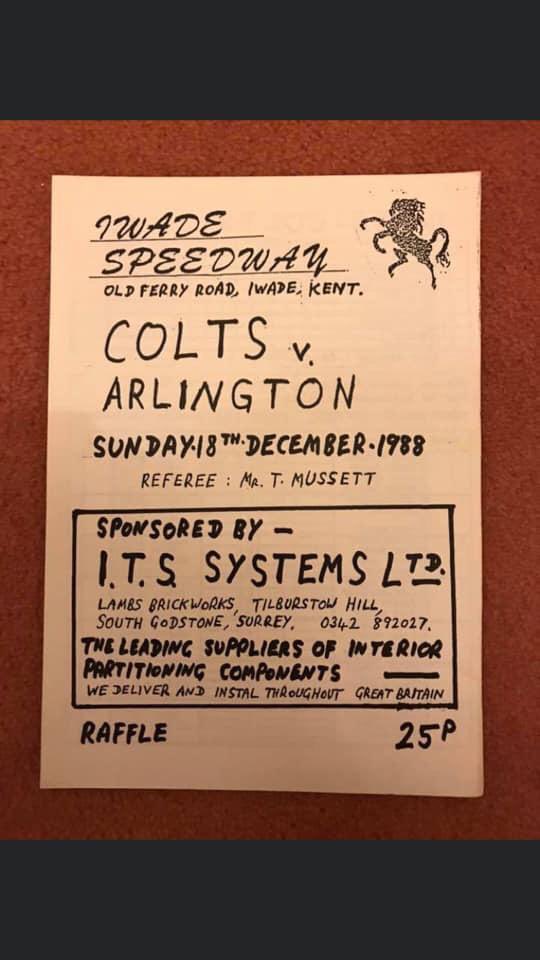 IWADE
SPEEDWAY
OLD FERRY ROAD, IWADE, KENT.
COLTS v.
ARLINGTON
SUNDAY·18TH·DECEMBER·1988
REFEREE : MR. T. MUSSETT
SPONSORED BY —
I.T.S. SYSTEMS LTD.
LAMBS BRICKWORKS, TILBURSTOW HILL,
SOUTH GODSTONE, SURREY. 0342 892027.
THE LEADING SUPPLIERS OF INTERIOR
PARTITIONING COMPONENTS —
WE DELIVER AND INSTAL THROUGHOUT GREAT BRITAIN
RAFFLE 25P